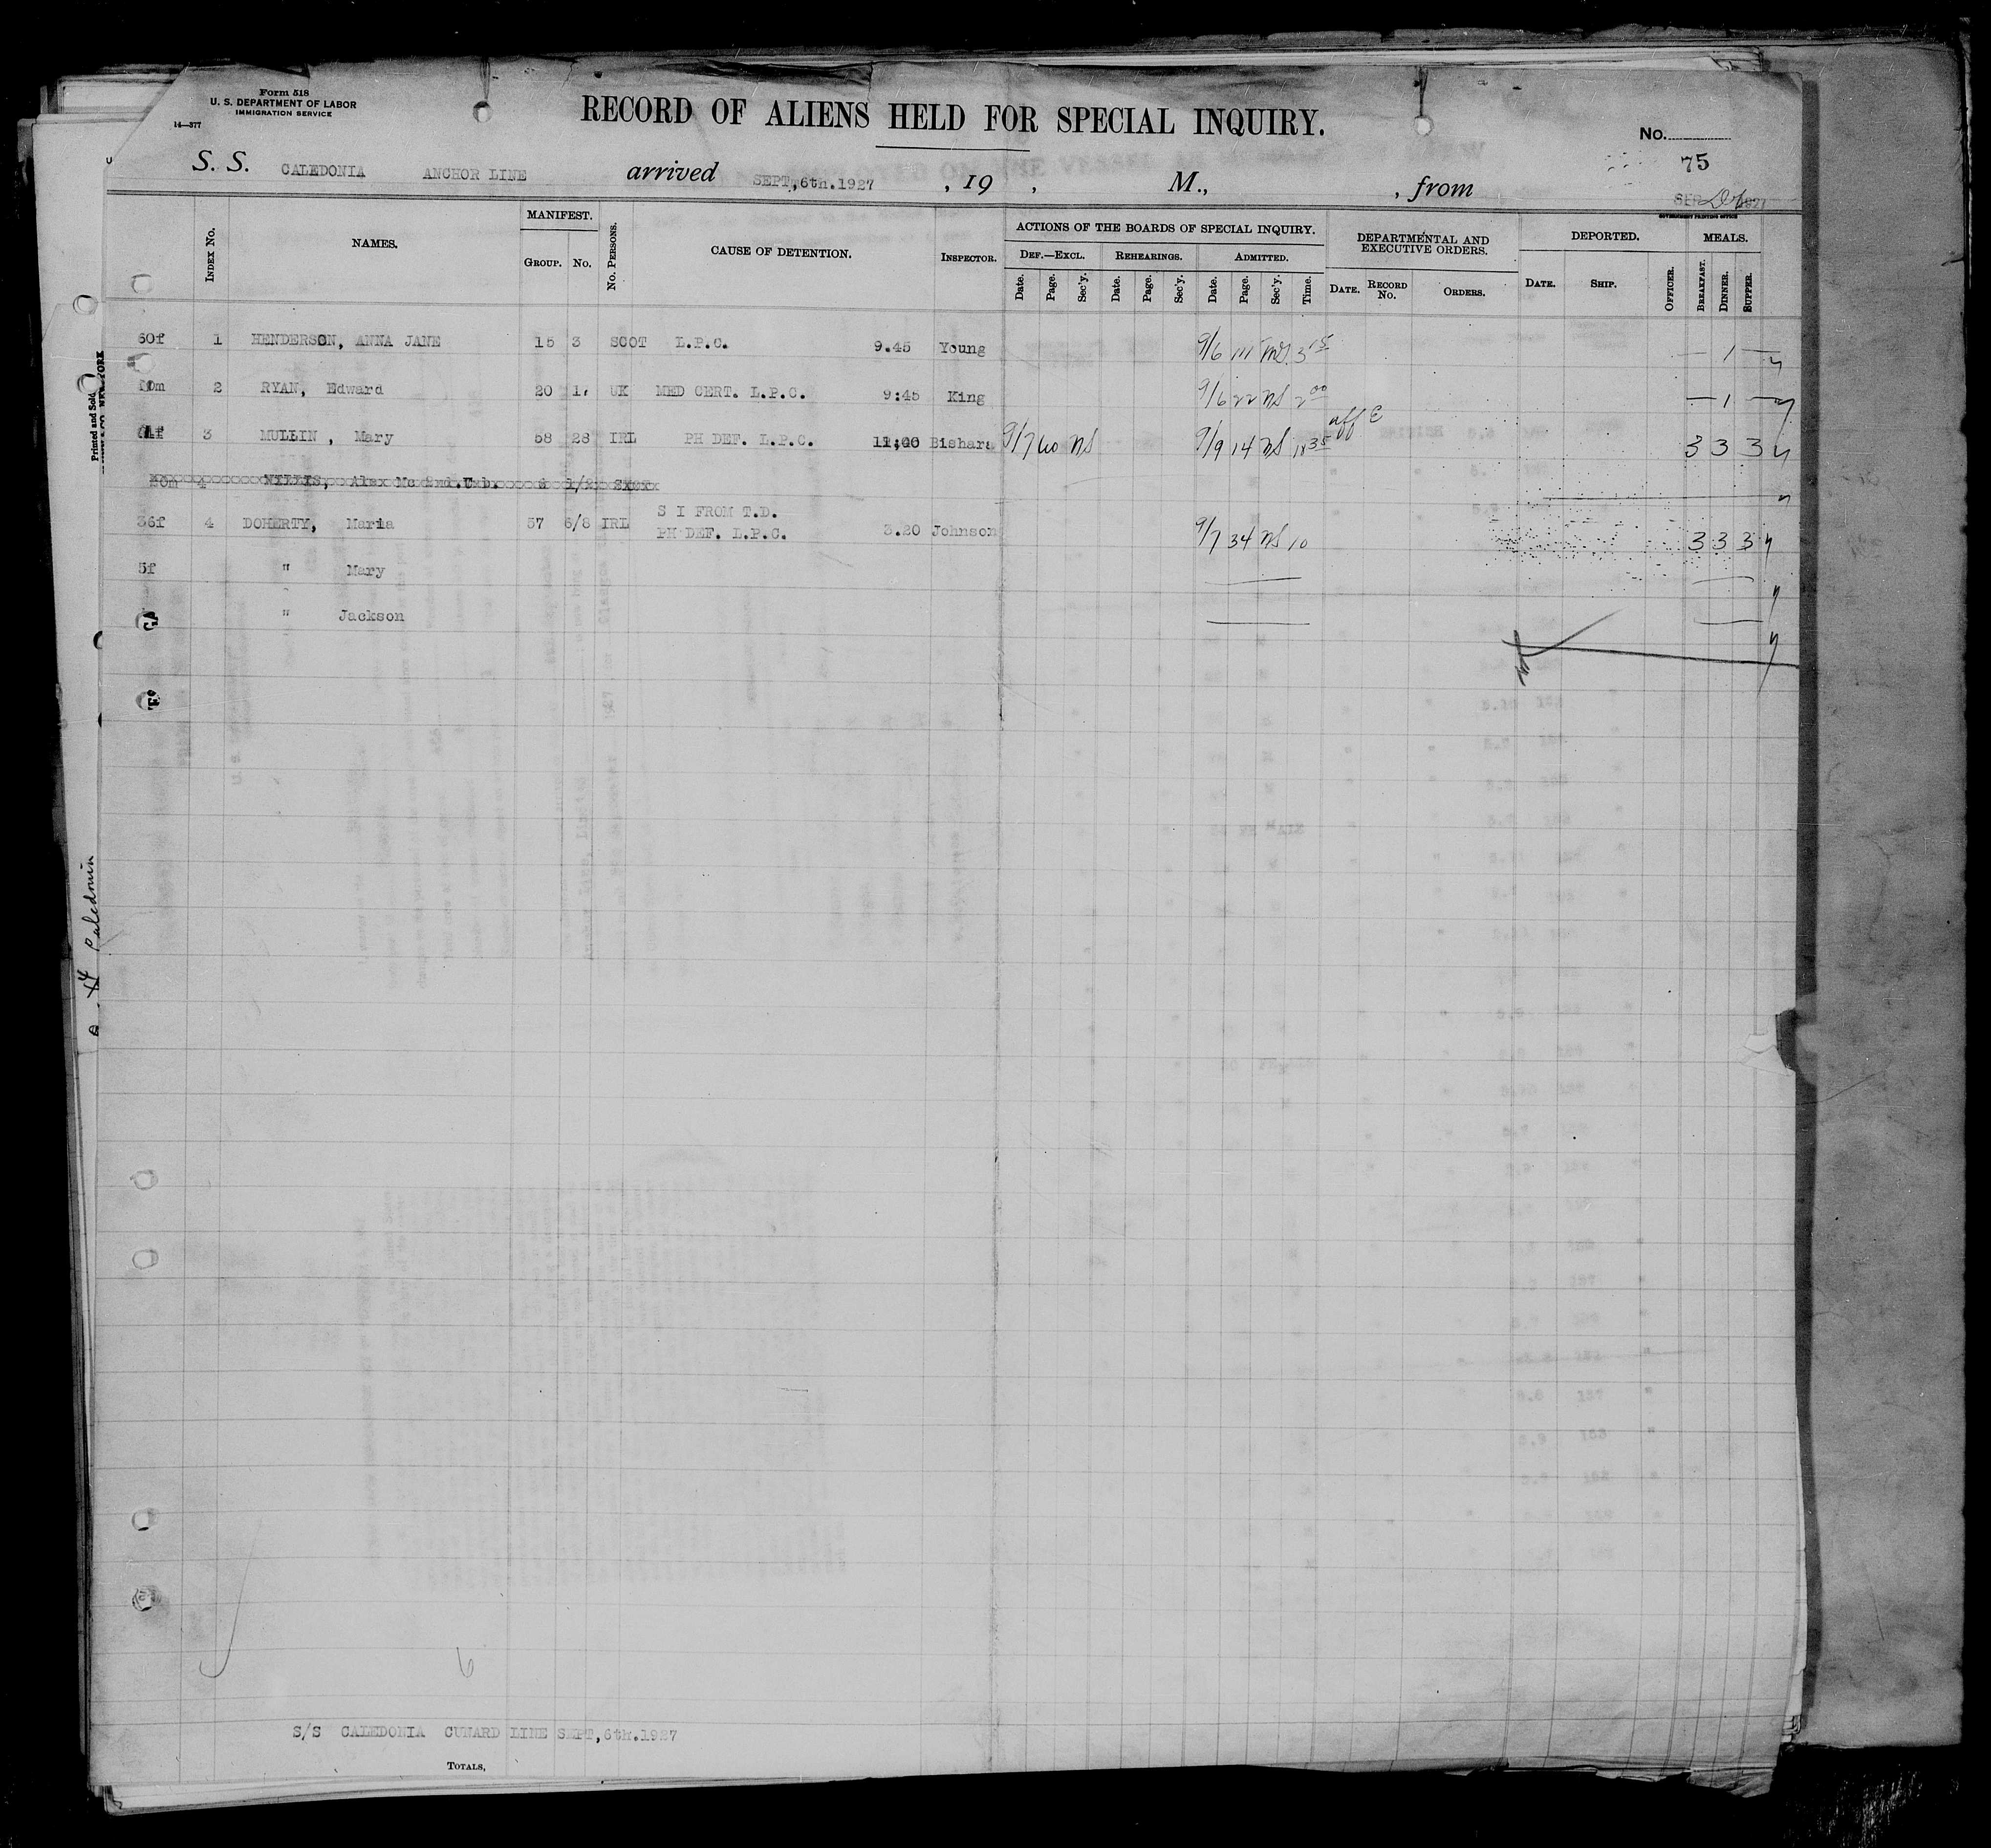 Form 518
U. S. DEPARTMENT OF LABOR
IMMIGRATION SERVICE
14—377
RECORD OF ALIENS HELD FOR SPECIAL INQUIRY.
No.
75
S. S. CALEDONIA ANCHOR LINE arrived SEPT,6th.1927 , 19 , M., , from
GOVERNMENT PRINTING OFFICE
INDEX No. NAMES. MANIFEST. GROUP. No. No. PERSONS. CAUSE OF DETENTION. INSPECTOR.
ACTIONS OF THE BOARDS OF SPECIAL INQUIRY.
DEF.—EXCL. REHEARINGS. ADMITTED.
Date. Page. Sec'y. Date. Page. Sec'y. Date. Page. Sec'y. Time.
DEPARTMENTAL AND EXECUTIVE ORDERS.
DATE. RECORD No. ORDERS.
DEPORTED.
DATE. SHIP. OFFICER.
MEALS.
BREAKFAST. DINNER. SUPPER.
60f 1 HENDERSON, ANNA JANE 15 3 SCOT L.P.C. 9.45 Young 9/6 3 15 — 1 —
2 RYAN, Edward 20 UK MED CERT. L.P.C. 9:45 King 9/6 22 NS 2 00 — 1 —
3 MULLIN , Mary 58 28 IRL PH DEF. L.P.C. Bishara 9/7 60 NS 9/9 14 NS 3 3 3
Alex
36f 4 DOHERTY, Maria 57 6/8 IRL S I FROM T.D.
PH DEF. L.P.C. 3.20 Johnson 9/7 34 NS 10 3 3 3
5f " Mary
" Jackson
Printed and Sold
S/S CALEDONIA CUNARD LINE SEPT,6th.1927
TOTALS,